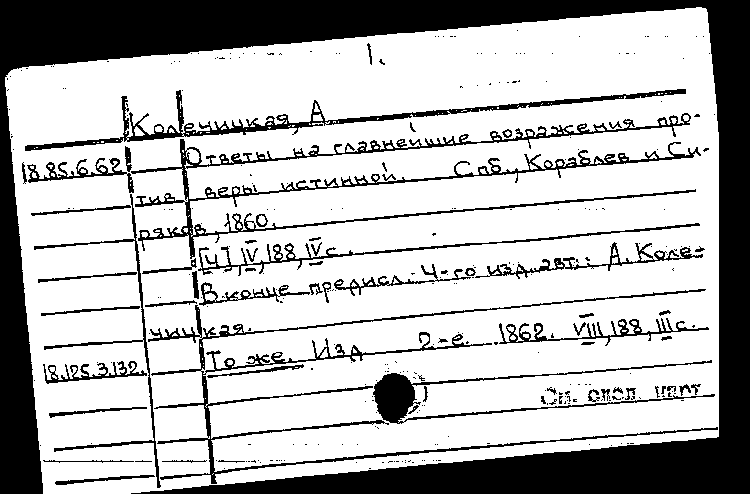 1.
Колечицкая, А
18.85.6.62 Ответы на главнейшие возражения про-
тив веры истинной. Спб., Кораблев и Си-
ряков, 1860.
[4], IV, 188, IV с.
В конце предисл. 4-го изд. авт.: А. Коле-
чицкая.
18.125.3.132. То же. Изд 2-е. 1862. VIII, 188, III с.
См. след. карт